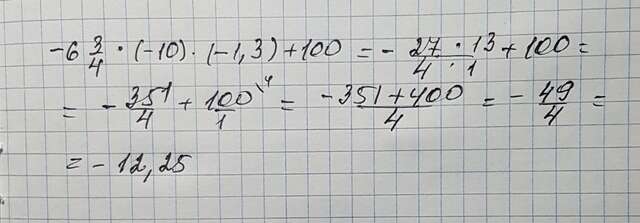 -6 3/4 · (-10) · (-1,3) + 100 = - 27/4 · 13/1 + 100 =
= - 351/4 + 100/1 \4 = -351+400/4 = - 49/4 =
= - 12,25